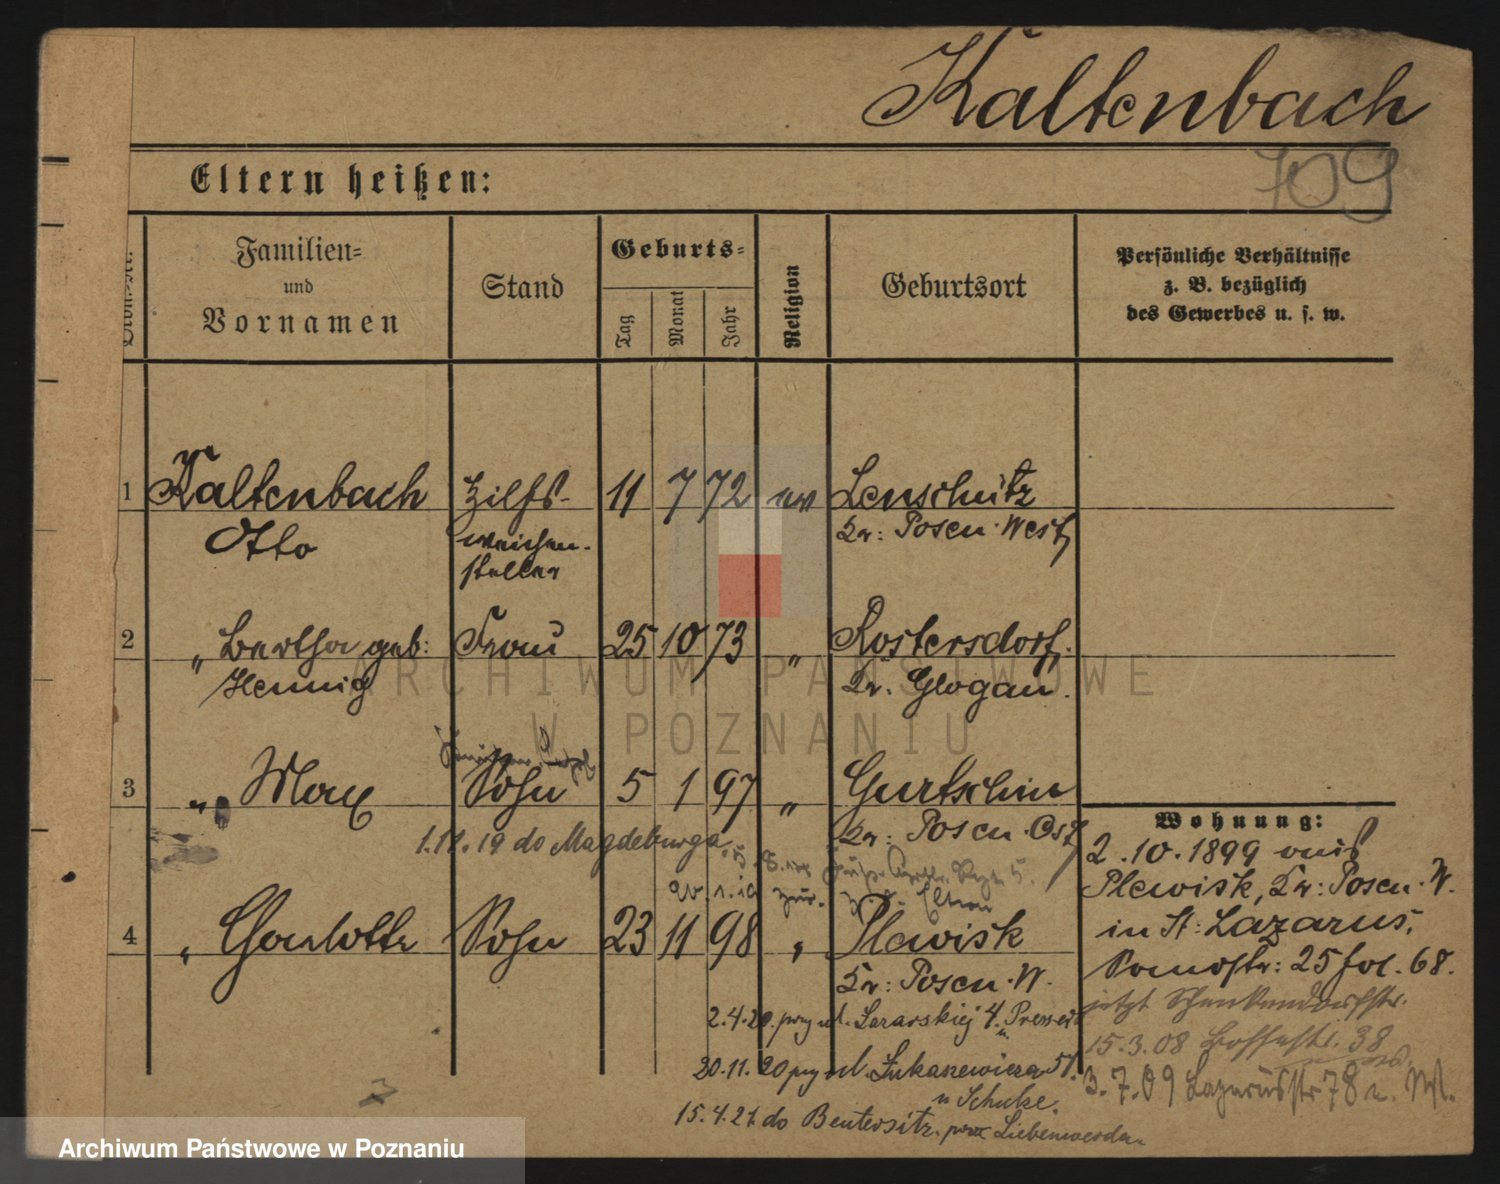 Kaltenbach
709
Eltern heißen:
Familien=
und
Vornamen
Stand
Geburts=
Tag
Monat
Jahr
Religion
Geburtsort
Persönliche Verhältnisse
z. B. bezüglich
des Gewerbes u. s. w.
1 Kaltenbach Hilfs- 11 7 72 ev Lenschütz
Otto weichen- Kr: Posen West
steller
2 „ Bertha geb: Frau 25 10 73 „ Kostersdorf.
Hennig Kr. Glogau.
3 „ Max Sohn 5 1 97 „ Gurtschin
Kr: Posen Ost
1.11.19 do Magdeburga
zur. Eltern
4 „ Charlotte Sohn 23 11 98 „ Plewisk
Kr: Posen. W.
2.4.20. przy ul. Lazarskiej 4.
20.11.20 przy ul. Lukaszewicza 51.
u Schulze.
15.4.21. do Beutersitz. Liebenwerda
Wohnung:
2.10.1899 aus
Plewisk, Kr: Posen. W.
in St: Lazarus,
25 fol. 68.
jetzt
15.3.08 38
3.7.09 Lazarusstr 78
ARCHIWUM PAŃSTWOWE
W POZNANIU
Archiwum Państwowe w Poznaniu